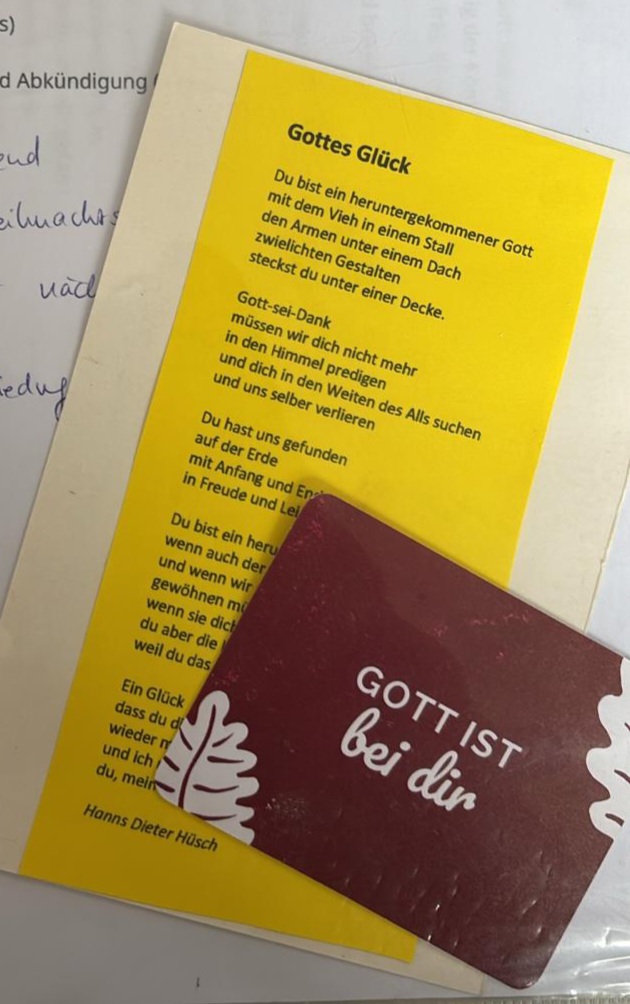 s)
d Abkündigung
end
eihnachts
näc
Gottes Glück
Du bist ein heruntergekommener Gott
mit dem Vieh in einem Stall
den Armen unter einem Dach
zwielichten Gestalten
steckst du unter einer Decke.
Gott-sei-Dank
müssen wir dich nicht mehr
in den Himmel predigen
und dich in den Weiten des Alls suchen
und uns selber verlieren
Du hast uns gefunden
auf der Erde
mit Anfang und En
in Freude und Lei
Du bist ein heru
wenn auch der
und wenn wir
gewöhnen mü
wenn sie dich
du aber die
weil du das
Ein Glück
dass du d
wieder n
und ich
du, mein
Hanns Dieter Hüsch
GOTT IST
bei dir